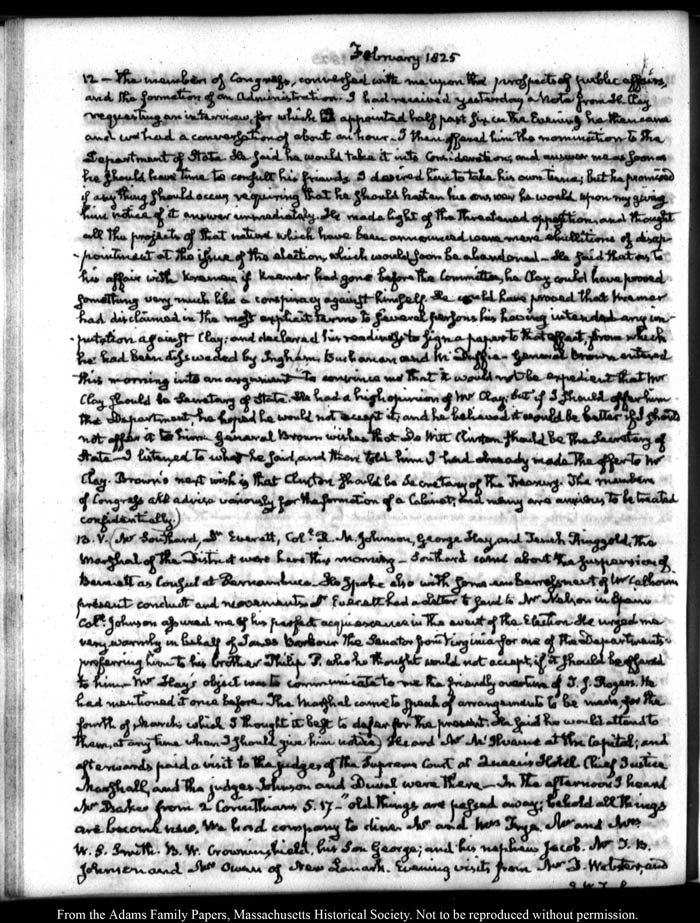 February 1825
12 — The members of Congress, conversed with me upon the prospects of public affairs,
and the formation of an Administration. I had received yesterday a Note from H. Clay
requesting an interview, for which I appointed half past six in the Evening he then came
and we had a conversation of about an hour. I then offered him the nomination to the
Department of State. He said he would take it into Consideration, and answer me as soon as
he should have time to consult his friends. I desired him to take his own time; but he promised
if any thing should occur, requiring that he should hasten his answer he would upon my giving
him notice of it answer immediately. He made light of the threatened opposition, and thought
all the projects of that nature which have been announced were mere ebullitions of disap-
-pointment at the issue of the election, which would soon be abandoned — He said that as to
his affair with Kremer, if Kremer had gone before the Committee, he Clay could have proved
something very much like a conspiracy against himself. He could have proved that Kremer
had disclaimed in the most explicit terms to several persons his having intended any im-
-putation against Clay; and declared his readiness to sign a paper to that effect, from which
he had been dissuaded by Ingham, Buchanan and McDuffie. General Brown entered
this morning into an argument to convince me that it would not be expedient that Mr
Clay should be Secretary of State. He had a high opinion of Mr Clay; but if I should offer him
the Department he hoped he would not accept it; and he believed it would be better if I should
not offer it to him. General Brown wishes that De Witt Clinton should be the Secretary of
State — I listened to what he said, and then told him I had already made the offer to Mr
Clay. Brown's next wish is that Clinton should be Secretary of the Treasury. The members
of Congress all advise variously for the formation of a Cabinet; and many are anxious to be treated
confidentially.)
13. V. (Mr Southard, Dr Everett, Coll. R. M. Johnson, George Hay, and Tench Ringgold, the
Marshal of the District were here this morning — Southard came about the suspension of
Bennett as Consul at Pernambuco. He spoke also with some embarrassment of Mr Calhoun's
present conduct and movements. Dr Everett had a Letter to send to Mr Nelson in Spain
Coll. Johnson assured me of his perfect acquiescence in the event of the Election. He urged me
very warmly in behalf of James Barbour the Senator from Virginia for one of the Departments
preferring him to his brother Philip P. who he thought would not accept, if it should be offered
to him. Mr Hay's object was to communicate to me the friendly overture of T. J. Rogers. He
had mentioned it once before. The Marshal came to speak of arrangements to be made for the
fourth of March which I thought it best to defer for the present. He said he would attend to
them, at any time when I should give him notice) Heard Mr McIlvaine at the Capitol; and
afterwards paid a visit to the judges of the Supreme Court at Queen's Hotel. Chief Justice
Marshall, and the judges Johnson and Duval were there — In the afternoon I heard
Mr Baker from 2 Corinthians 5. 17. "old things are passed away; behold all things
are become new. We had company to dine. Mr and Mrs Frye. Mr and Mrs
W. S. Smith. B. W. Crowninshield, his Son George; and his nephew Jacob. Mr T. B.
Johnson and Mr Owen of New Lanark. Evening visits from Mr D. Webster, and
From the Adams Family Papers, Massachusetts Historical Society. Not to be reproduced without permission.